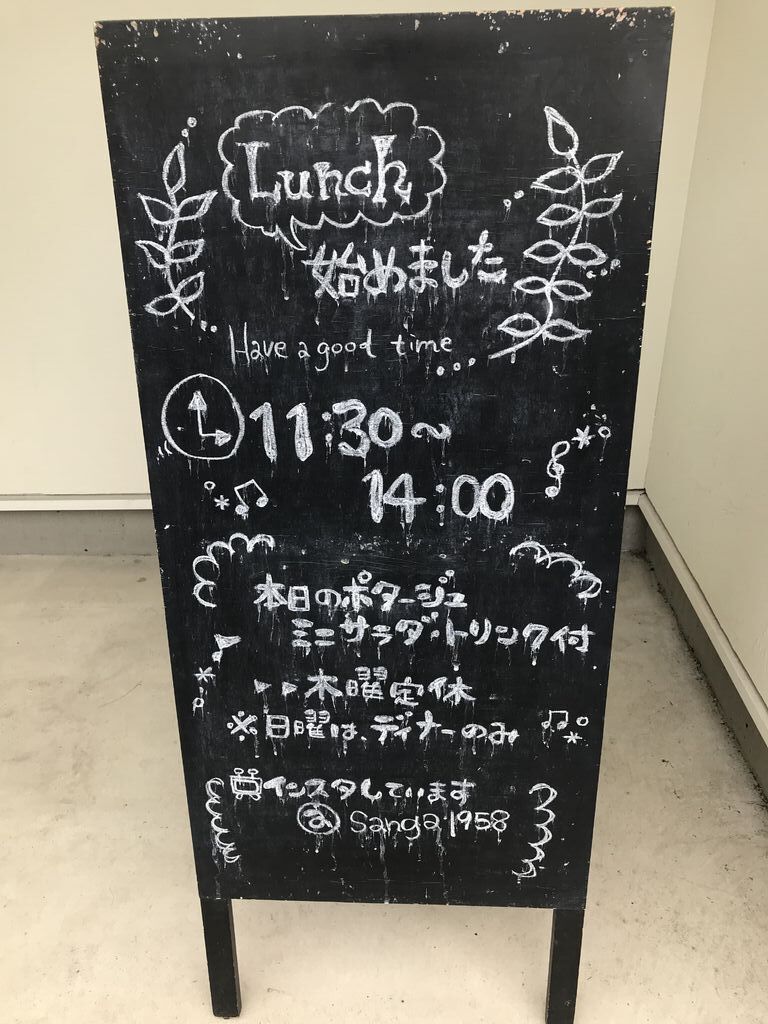 Lunch
始めました
Have a good time
11:30〜
14:00
本日のポタージュ
ミニサラダ・トリンク付
木曜定休
※日曜は、ディナーのみ
インスタしています
@ Sanga1958